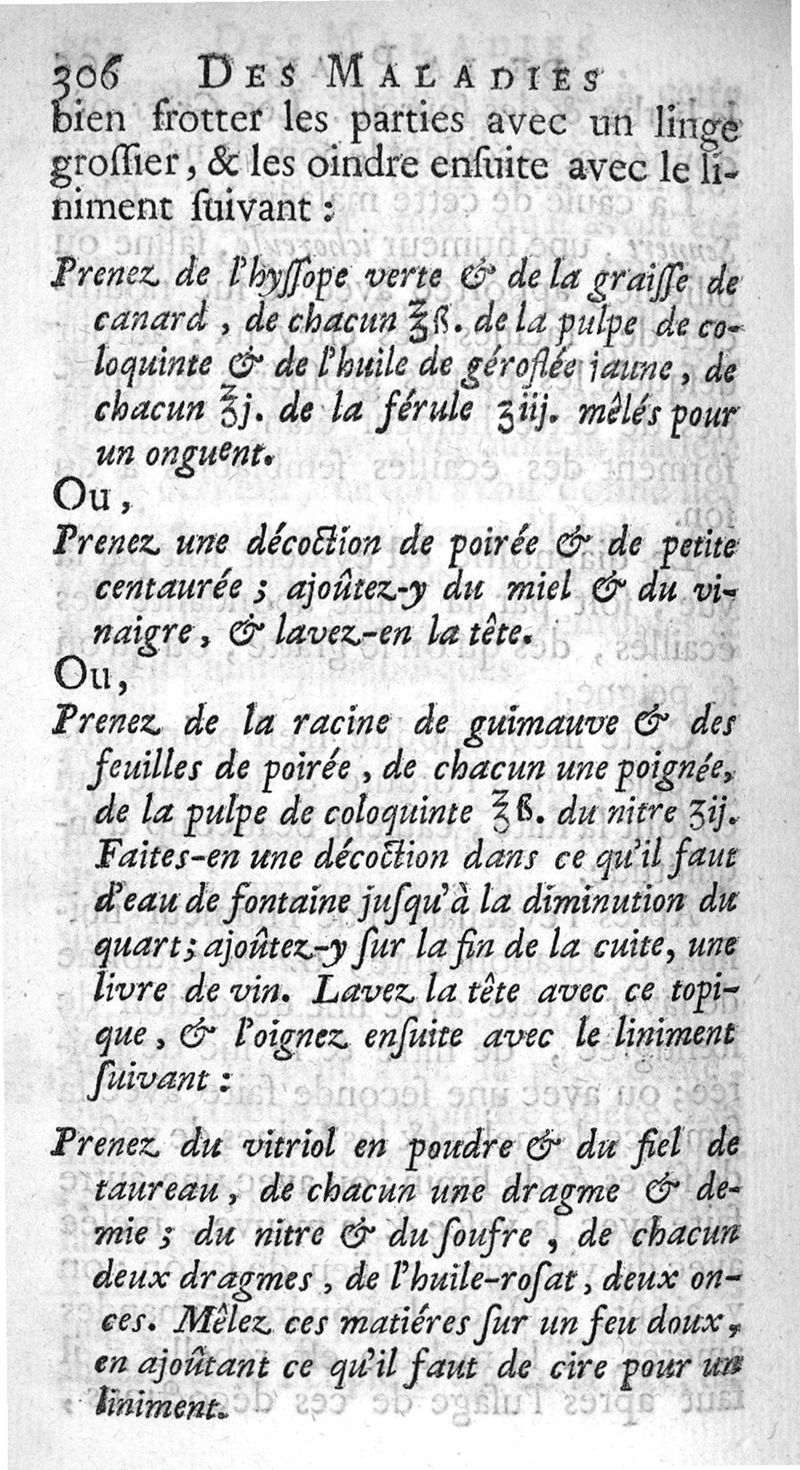 306 DES MALADIES
bien frotter les parties avec un linge
groſſier, & les oindre enſuite avec le li-
niment ſuivant :
Prenez de l'hyſſope verte & de la graiſſe de
canard , de chacun ℥ß. de la pulpe de co-
loquinte & de l'huile de géroflée jaune , de
chacun ℥j. de la férule ʒiij. mêlés pour
un onguent.
Ou ,
Prenez une décoction de poirée & de petite
centaurée ; ajoûtez-y du miel & du vi-
naigre , & lavez-en la tête.
Ou,
Prenez de la racine de guimauve & des
feuilles de poirée , de chacun une poignée,
de la pulpe de coloquinte ℥ß. du nitre ʒij.
Faites-en une décoction dans ce qu'il faut
d'eau de fontaine juſqu'à la diminution du
quart ; ajoûtez-y ſur la fin de la cuite, une
livre de vin. Lavez la tête avec ce topi-
que , & l'oignez enſuite avec le liniment
ſuivant :
Prenez du vitriol en poudre & du fiel de
taureau , de chacun une dragme & de-
mie ; du nitre & du ſoufre , de chacun
deux dragmes , de l'huile-roſat , deux on-
ces. Mêlez ces matiéres ſur un feu doux ,
en ajoûtant ce qu'il faut de cire pour un
liniment.